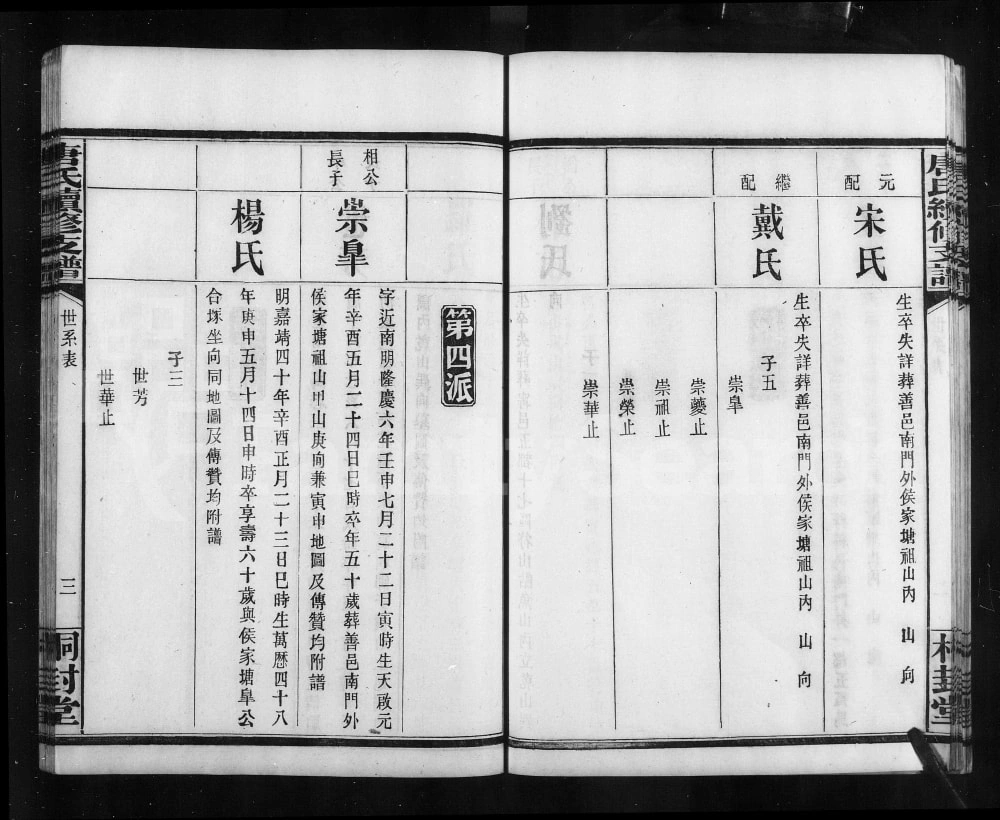 元配
宋氏
生卒失詳葬善邑南門外侯家塘祖山內　山　向
繼配
戴氏
生卒失詳葬善邑南門外侯家塘祖山內　山　向
子五
崇臯
崇夔止
崇祖止
崇榮止
崇華止
第四派
相公長子
崇臯
字近南明隆慶六年壬申七月二十二日寅時生天啟元
年辛酉五月二十四日巳時卒年五十歲葬善邑南門外
侯家塘祖山甲山庚向兼寅申地圖及傳贊均附譜
楊氏
明嘉靖四十年辛酉正月二十三日巳時生萬曆四十八
年庚申五月十四日申時卒享壽六十歲與侯家塘臯公
合塚坐向同地圖及傳贊均附譜
子三
世芳
世華止
唐氏續修支譜
世系表
三
桐封堂